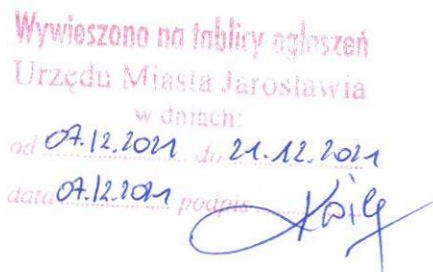 Wywieszono na tablicy ogłoszeń
Urzędu Miasta Jarosławia
w dniach:
od 07.12.2021 do 21.12.2021
data 07.12.2021 podpis